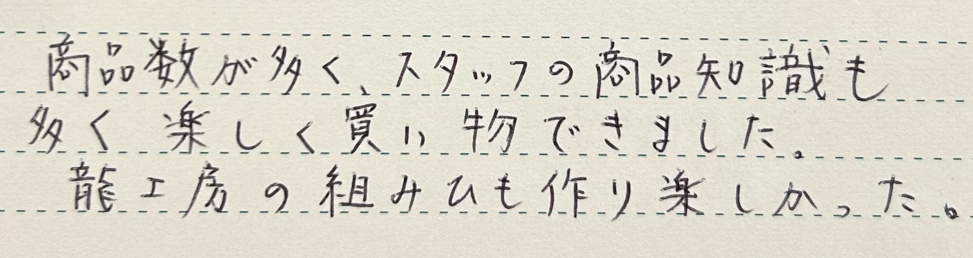 商品数が多く、スタッフの商品知識も
多く楽しく買い物できました。
龍工房の組みひも作り楽しかった。